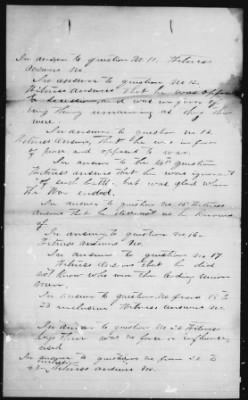 In answer to question No. 11. Witness
answers No.
In answer to question No 12
Witness answers that he was opposed
to secession, and was in favor of
any thing remaining as they then
were.
In answer to question no 13
Witness answers, that he was in favor
of peace and opposed to war.
In answer to the 14th question
Witness answers that he was ignorant
of such battle, but was glad when
the War ended.
In answer to question no 15 Witness
answers that he
of
In answer to question no 16
Witness answers No.
In answer to question no 17
Witness answers that he did
not know who were the leading union
men.
In answer to question No from 18 to
23 inclusive Witness answers No.
In answer to question No 24 Witness
says there was no force or influence
used
In answer to questions no from 25 to
inclusive Witness answers No.